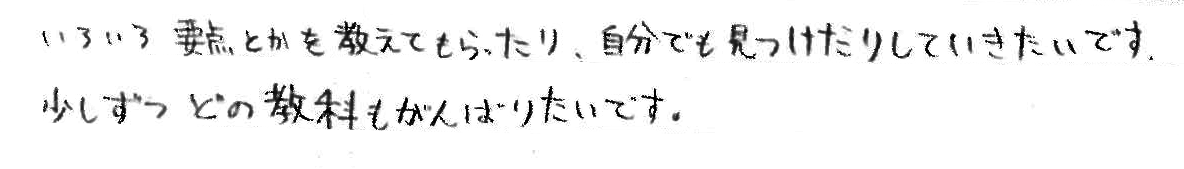 いろいろ要点とかを教えてもらったり、自分でも見つけたりしていきたいです.
少しずつどの教科もがんばりたいです。